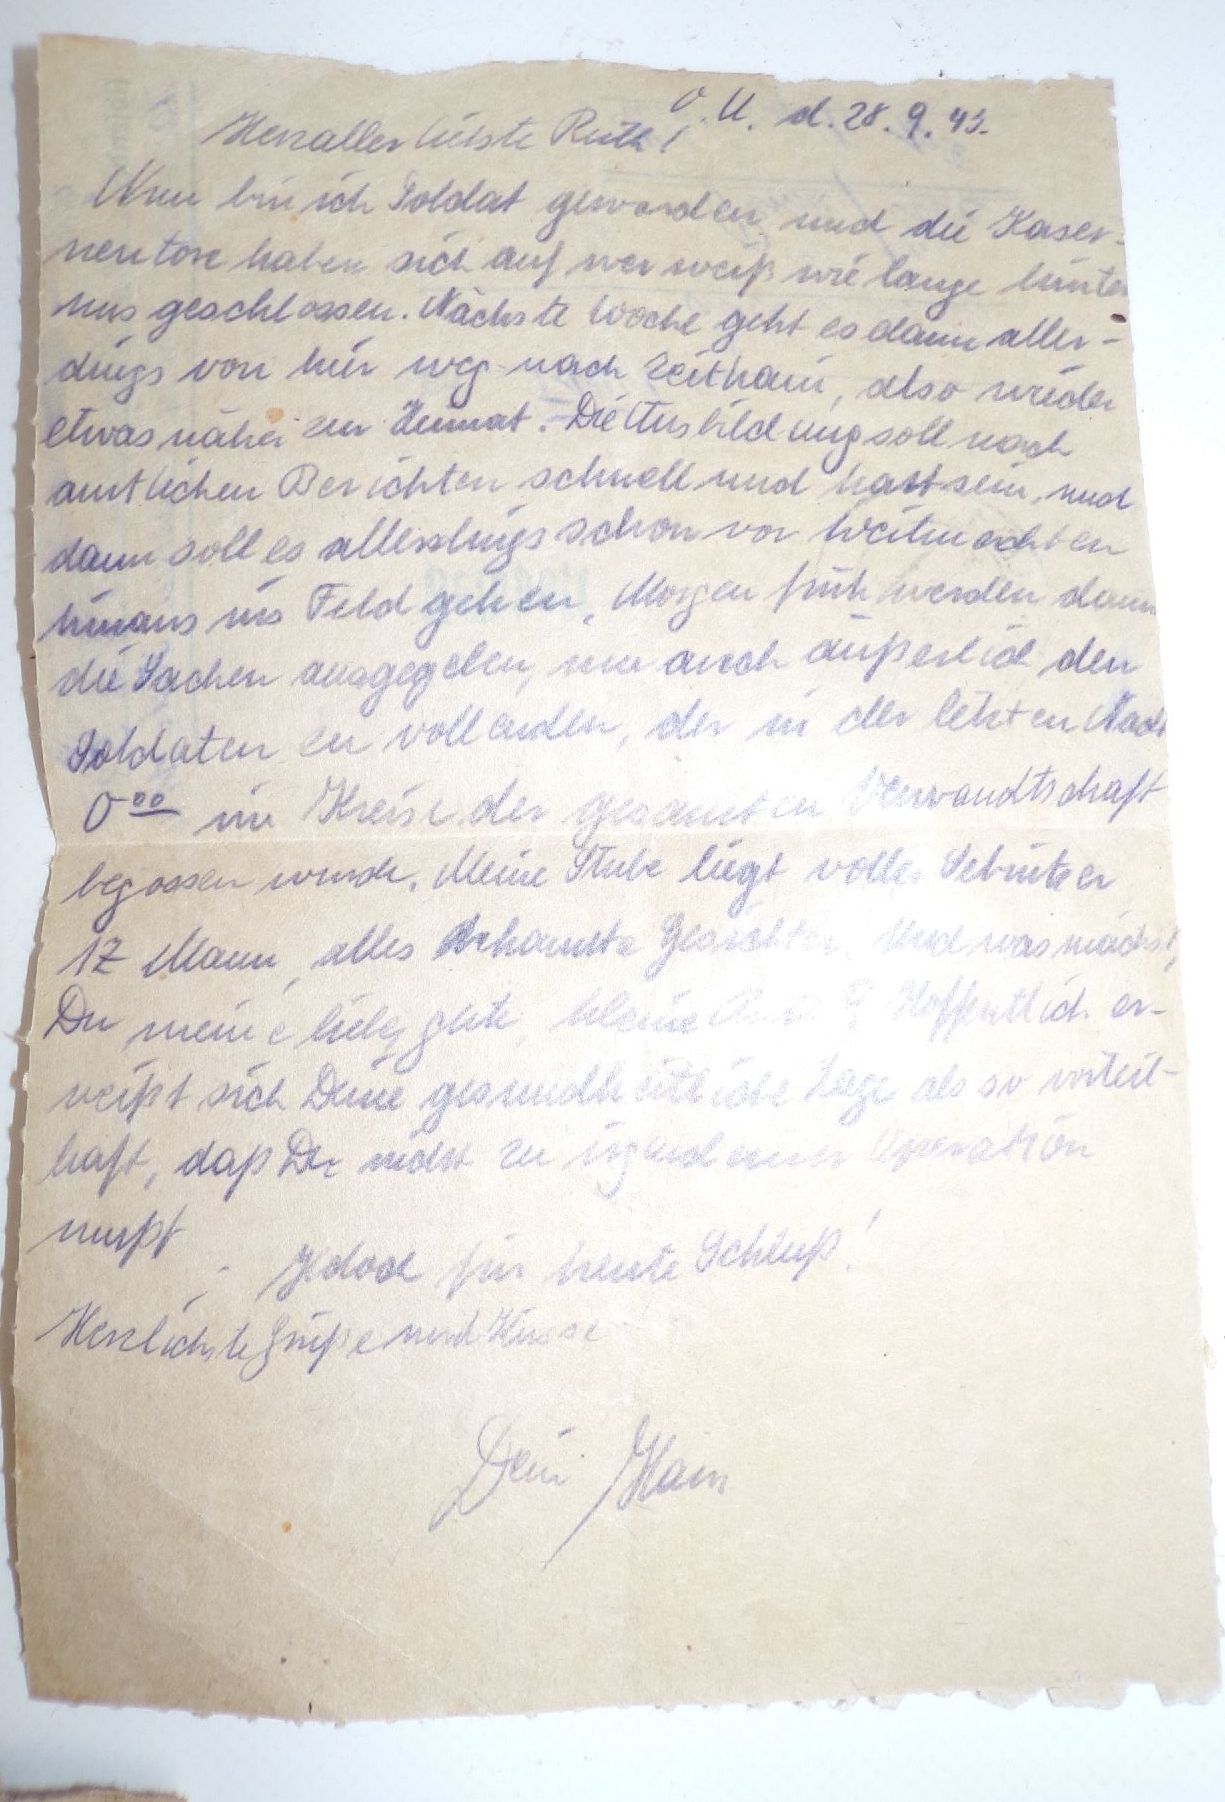 O. U. d. 28. 9. 43.
Herzallerliebste Ruth!
Nun bin ich Soldat geworden und die Kaser-
nentore haben sich auf wer weiß wie lange hinter
uns geschlossen. Nächste Woche geht es dann aller-
dings von hier weg nach Zeithain, also wieder
etwas näher zur Heimat. Die Ausbildung soll nach
amtlichen Berichten schnell und hart sein, und
dann soll es allerdings schon vor Weihnachten
hinaus ins Feld gehen. Morgen früh werden dann
die Sachen ausgegeben, um auch äußerlich den
Soldaten zu vollenden, der in der letzten Nacht
0⁰⁰ im Kreise der gesamten Verwandtschaft
begossen wurde. Meine Stube liegt voller Sebnitzer
17 Mann, alles bekannte Gesichter. Und was machst
Du meine liebe, gute, kleine Hoffentlich er-
weißt sich Deine gesundheitliche Lage als so vorteil-
haft, daß Du nicht zu irgendeiner Operation
mußt.
Jedoch für heute Schluß!
Herzlichste Grüße und Küsse
Dein